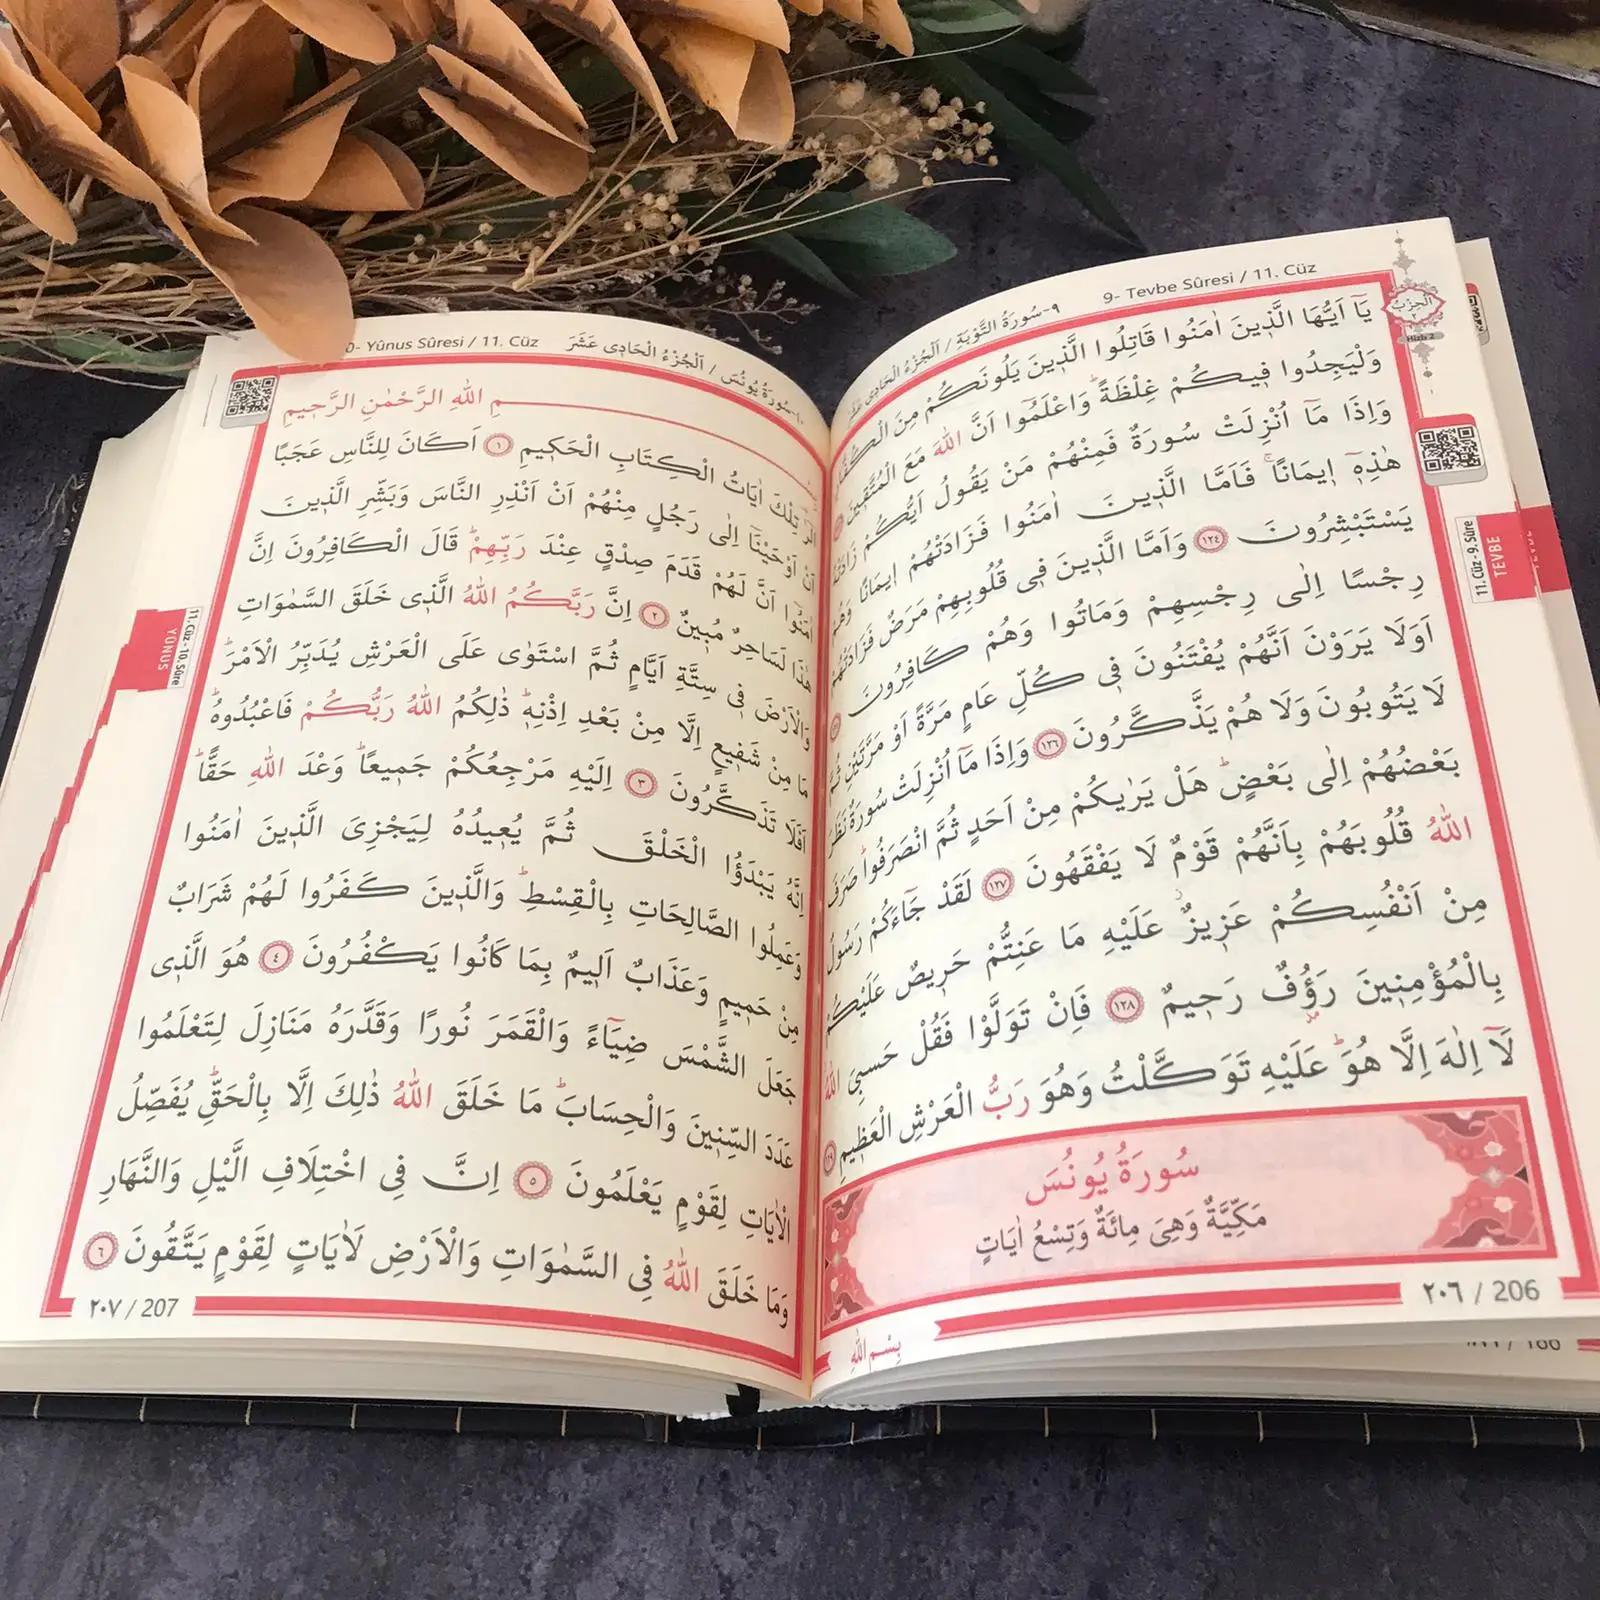 ٩-سُورَةُ التَّوْبَةِ / اَلْجُزْءُ الْحَادِى عَشَرَ
9- Tevbe Sûresi / 11. Cüz
اَلْحِزْبُ
Hizb 2
يَٓا اَيُّهَا الَّذ۪ينَ اٰمَنُوا قَاتِلُوا الَّذ۪ينَ يَلُونَكُمْ مِنَ الْكُفَّارِ
وَلْيَجِدُوا ف۪يكُمْ غِلْظَةًۜ وَاعْلَمُٓوا اَنَّ اللّٰهَ مَعَ الْمُتَّق۪ينَ
وَاِذَا مَٓا اُنْزِلَتْ سُورَةٌ فَمِنْهُمْ مَنْ يَقُولُ اَيُّكُمْ زَادَتْهُ
هٰذِه۪ٓ ا۪يمَانًاۚ فَاَمَّا الَّذ۪ينَ اٰمَنُوا فَزَادَتْهُمْ ا۪يمَانًا وَهُمْ
يَسْتَبْشِرُونَ ﴿١٢٤﴾ وَاَمَّا الَّذ۪ينَ ف۪ى قُلُوبِهِمْ مَرَضٌ فَزَادَتْهُمْ
رِجْسًا اِلٰى رِجْسِهِمْ وَمَاتُوا وَهُمْ كَافِرُونَ ﴿١٢٥﴾
اَوَلَا يَرَوْنَ اَنَّهُمْ يُفْتَنُونَ ف۪ى كُلِّ عَامٍ مَرَّةً اَوْ مَرَّتَيْنِ ثُمَّ
لَا يَتُوبُونَ وَلَا هُمْ يَذَّكَّرُونَ ﴿١٢٦﴾ وَاِذَا مَٓا اُنْزِلَتْ سُورَةٌ نَظَرَ
بَعْضُهُمْ اِلٰى بَعْضٍۜ هَلْ يَرٰيكُمْ مِنْ اَحَدٍ ثُمَّ انْصَرَفُواۜ صَرَفَ
اللّٰهُ قُلُوبَهُمْ بِاَنَّهُمْ قَوْمٌ لَا يَفْقَهُونَ ﴿١٢٧﴾ لَقَدْ جَٓاءَكُمْ رَسُولٌ
مِنْ اَنْفُسِكُمْ عَز۪يزٌ عَلَيْهِ مَا عَنِتُّمْ حَر۪يصٌ عَلَيْكُمْ
بِالْمُؤْمِن۪ينَ رَؤُ۫فٌ رَح۪يمٌ ﴿١٢٨﴾ فَاِنْ تَوَلَّوْا فَقُلْ حَسْبِىَ اللّٰهُ
لَٓا اِلٰهَ اِلَّا هُوَۜ عَلَيْهِ تَوَكَّلْتُ وَهُوَ رَبُّ الْعَرْشِ الْعَظ۪يمِ ﴿١٢٩﴾
سُورَةُ يُونُسَ
مَكِّيَّةٌ وَهِىَ مِائَةٌ وَتِسْعُ اٰيَاتٍ
٢٠٦ / 206
بِسْمِ اللّٰهِ
11. Cüz - 9. Sûre
TEVBE
١٠-سُورَةُ يُونُسَ / اَلْجُزْءُ الْحَادِى عَشَرَ
0- Yûnus Sûresi / 11. Cüz
ـــمِ اللّٰهِ الرَّحْمٰنِ الرَّح۪يمِ
الٓرٰ تِلْكَ اٰيَاتُ الْكِتَابِ الْحَك۪يمِ ﴿١﴾ اَكَانَ لِلنَّاسِ عَجَبًا
اَنْ اَوْحَيْنَٓا اِلٰى رَجُلٍ مِنْهُمْ اَنْ اَنْذِرِ النَّاسَ وَبَشِّرِ الَّذ۪ينَ
اٰمَنُٓوا اَنَّ لَهُمْ قَدَمَ صِدْقٍ عِنْدَ رَبِّهِمْۜ قَالَ الْكَافِرُونَ اِنَّ
هٰذَا لَسَاحِرٌ مُب۪ينٌ ﴿٢﴾ اِنَّ رَبَّكُمُ اللّٰهُ الَّذ۪ى خَلَقَ السَّمٰوَاتِ
وَالْاَرْضَ ف۪ى سِتَّةِ اَيَّامٍ ثُمَّ اسْتَوٰى عَلَى الْعَرْشِ يُدَبِّرُ الْاَمْرَۜ
مَا مِنْ شَف۪يعٍ اِلَّا مِنْ بَعْدِ اِذْنِه۪ۜ ذٰلِكُمُ اللّٰهُ رَبُّكُمْ فَاعْبُدُوهُۜ
اَفَلَا تَذَكَّرُونَ ﴿٣﴾ اِلَيْهِ مَرْجِعُكُمْ جَم۪يعًاۜ وَعْدَ اللّٰهِ حَقًّاۜ
اِنَّهُ يَبْدَؤُا الْخَلْقَ ثُمَّ يُع۪يدُهُ لِيَجْزِىَ الَّذ۪ينَ اٰمَنُوا
وَعَمِلُوا الصَّالِحَاتِ بِالْقِسْطِۜ وَالَّذ۪ينَ كَفَرُوا لَهُمْ شَرَابٌ
مِنْ حَم۪يمٍ وَعَذَابٌ اَل۪يمٌ بِمَا كَانُوا يَكْفُرُونَ ﴿٤﴾ هُوَ الَّذ۪ى
جَعَلَ الشَّمْسَ ضِيَٓاءً وَالْقَمَرَ نُورًا وَقَدَّرَهُ مَنَازِلَ لِتَعْلَمُوا
عَدَدَ السِّن۪ينَ وَالْحِسَابَۜ مَا خَلَقَ اللّٰهُ ذٰلِكَ اِلَّا بِالْحَقِّۜ يُفَصِّلُ
الْاٰيَاتِ لِقَوْمٍ يَعْلَمُونَ ﴿٥﴾ اِنَّ فِى اخْتِلَافِ الَّيْلِ وَالنَّهَارِ
وَمَا خَلَقَ اللّٰهُ فِى السَّمٰوَاتِ وَالْاَرْضِ لَاٰيَاتٍ لِقَوْمٍ يَتَّقُونَ ﴿٦﴾
٢٠٧ / 207
11. Cüz - 10. Sûre
YÛNUS